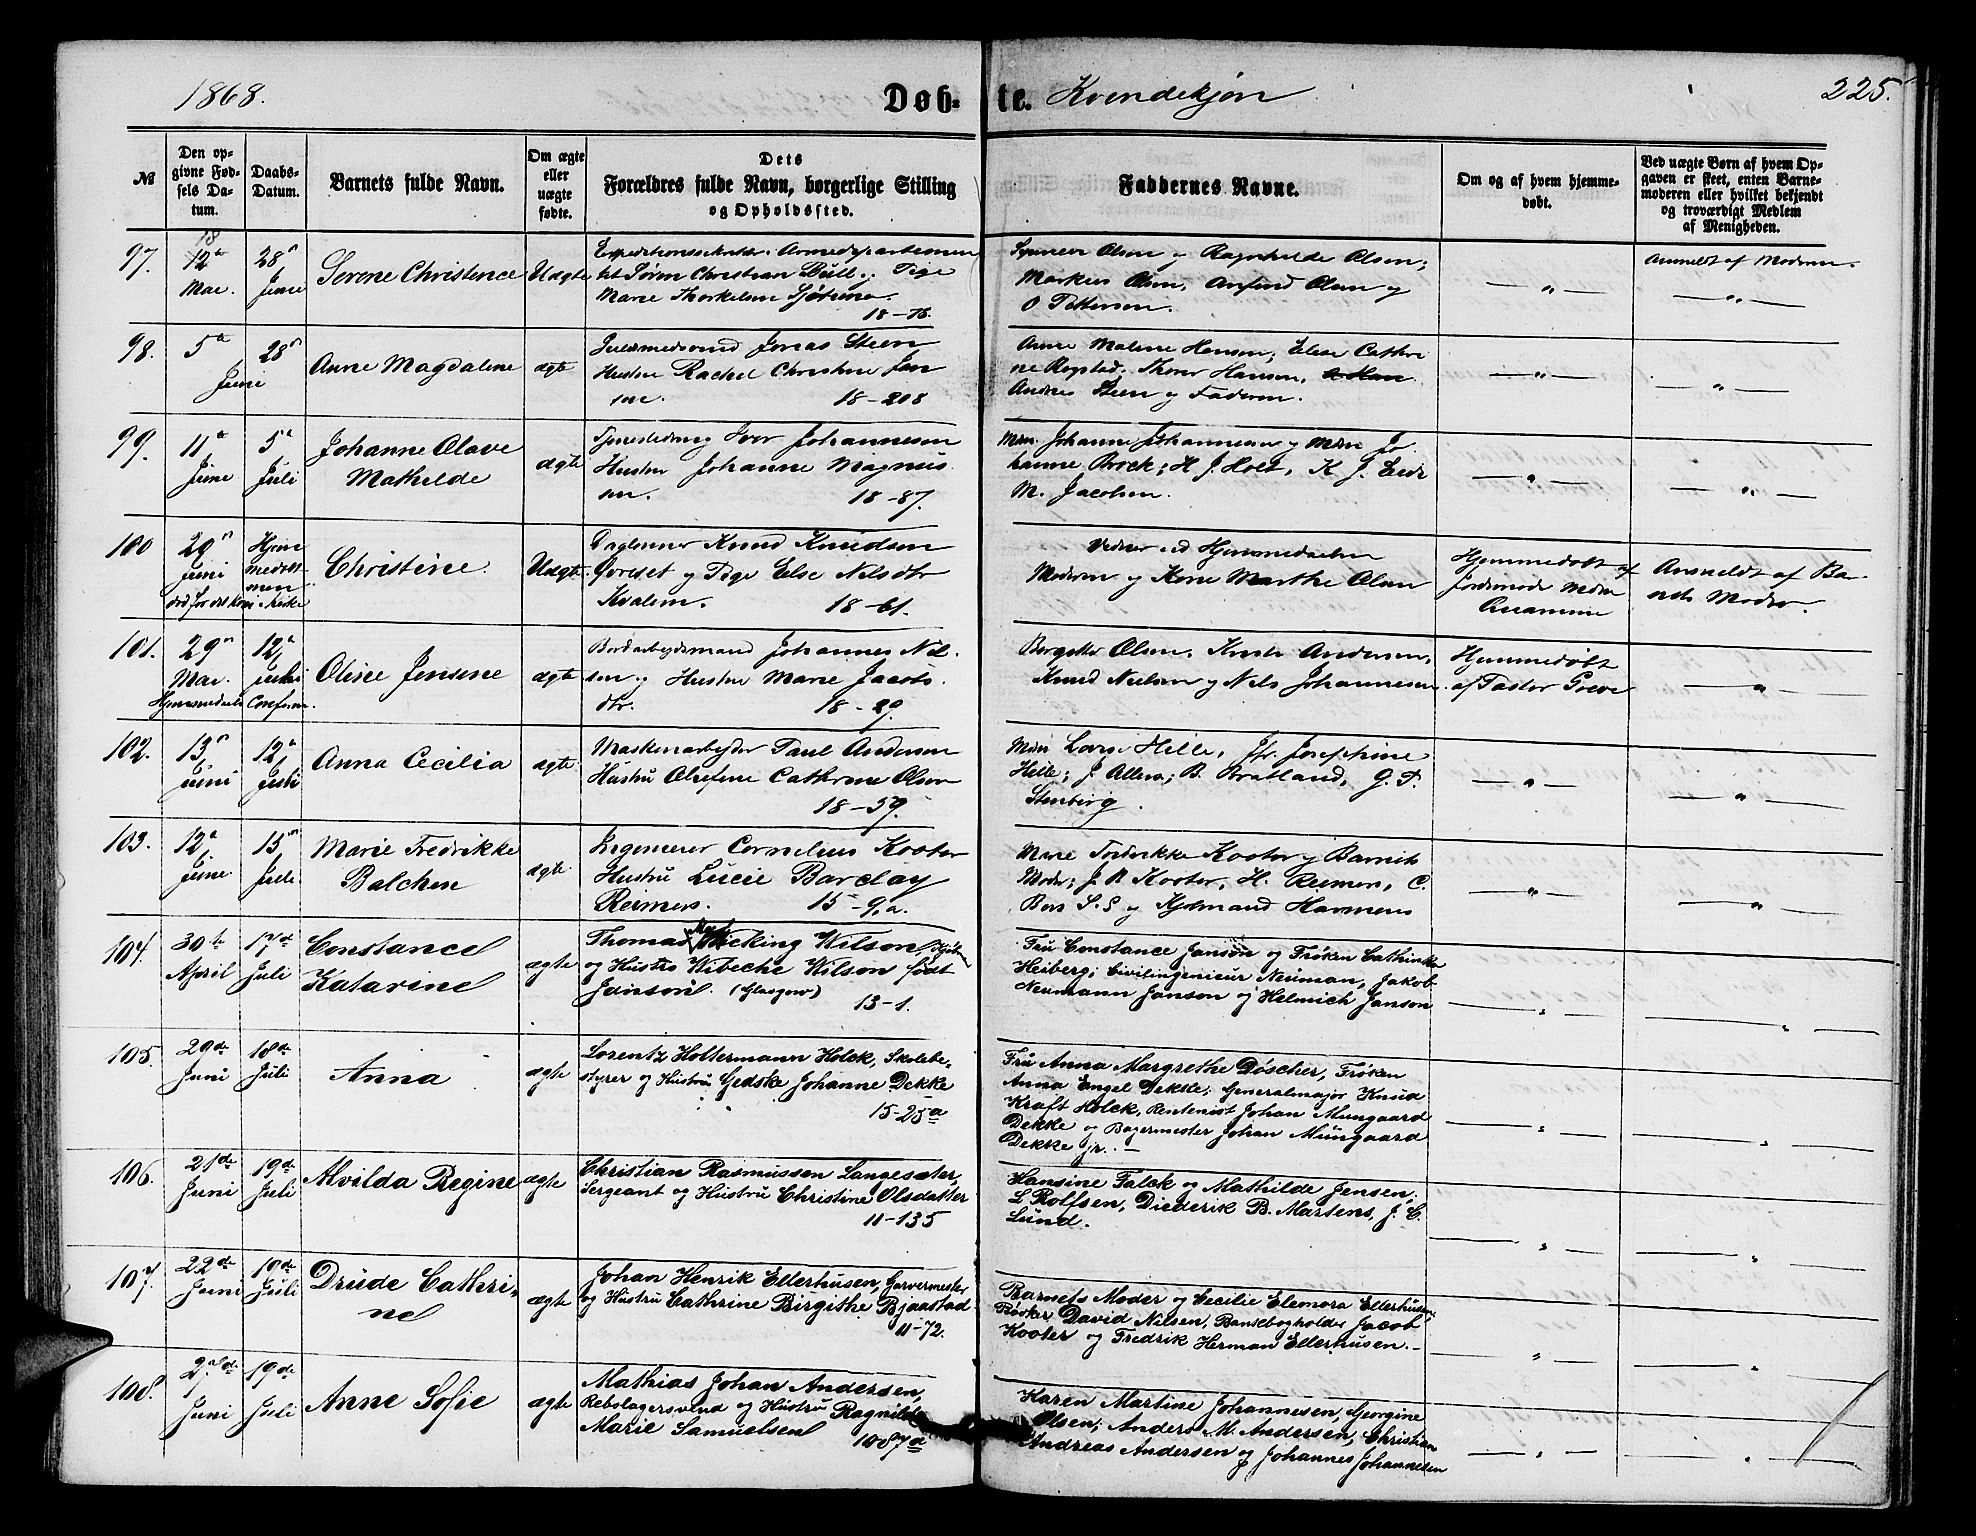 1868.
Døb-te. Kvindekjøn
225.
№
Den opgivne Fødsels Datum.
Daabs-Datum.
Barnets fulde Navn.
Om ægte eller uægte fødte.
Dets Forældres fulde Navn, borgerlige Stilling og Opholdssted.
Faddernes Navne.
Om og af hvem hjemmedøbt.
Ved uægte Børn af hvem Opgaven er skeet, enten Barnemoderen eller hvilket bekjendt og troværdigt Medlem af Menigheden.
97.
18
12te Mai.
28n Juni
Serene Christence
Uægte
Søren Christian Bull. Pige
Marie Thorkelsen
18-76.
Olsen og Ragnhilde Olsen;
Markus Olsen, Anfind Olsen og
O Pettersen.
— " —
Anmeldt af Moderen.
— " —
98.
5te Juni
28n
Anne Magdalene
ægte
Guldsmedsvend Jonas Steen
Hustru Rachel Christine Jan
sen.
18-208
Anne Malene Hansen; Elise Cathri
ne Rogstad. Thore Hansen,
Andreas Steen og Faderen.
— " —
— " —
99.
11te Juni
5te Juli
Johanne Olave
Mathilde
ægte
Iver Johannesen
Hustru Johanne Magnus
sen.
18-87.
Mdm. Johanne Johannesen og Mdm Jo
hanne Brock; H. J. Holt, K J.
M. Jacobsen.
— " —
— " —
100
20n Juni
Christine
Uægte.
Knud Knudsen
og Pige Else Nilsdtr
Kvalem.
18-61.
Vidner ved Hjemmedaaben
Moderen og Kone Marthe Olsen
Hjemmedøbt af
Jordemoder Mdm
Anmeldt af Bar
nets Moder.
101.
29n Mai.
12te Juli
Hjemmedaab Conferm.
Oline Jensine
ægte
Johannes Nil
sen og Hustru Marie Jacobs
dtr.
18-29.
Olsen, Andersen,
Knud Nielsen og Nils Johannesen.
Hjemmedøbt
af Pastor Greve
— " —
102.
13n Juni
12te Juli
Anna Cecilia
ægte
Maskinarbeider Paul Andersen
Hustru Olufine Cathrine Olsen
18-59.
Mdm Lovise Hille, Jfr. Josephine
Hille; J. B. Bratland, G. P.
Stenberg.
— " —
— " —
103.
12te Juni.
13n Juli
Marie Fredrikke
Balchen
ægte
Ingeniør Cornelius Kooter
Hustru Lucie Barclay
Reimers.
15-9.a.
Marie Fredrikke Kooter og Barnets
Moder; J. R Kooter, H. Reimers, C.
Bers S.S og Kjøbmand Harmens
— " —
— " —
104.
30te April
17de Juli
Constance
Katarine
ægte
Thomas Wicking Wilson, Kjøbm
og Hustru Wibeche Wilson født
Janson. (Glasgow)
13-1.
Fru Constance Janson og Frøken Cathinka
Heiberg; Civilingenieur Neuman, Jakob
Neumann Janson og Helmich Janson
— " —
— " —
105.
29de Juni
18de Juli
Anna
ægte
Lorentz Holtermann Holck, Skolebe-
styrer og Hustru Gedske Johanne Dekke
15-25a
Fru Anna Margrethe Døscher, Frøken
Anna Engel Dekke; Generalmajor Knud
Kraft Holck, Rentenist Johan Mungaard
Dekke og Bagermester Johan Mungaard
Dekke jr. —
— " —
— " —
106.
21de Juni
19de Juli
Alvilda Regine
ægte
Christian Rasmussen Langesæter,
Sergeant og Hustru Christine Olsdatter
11-135
Hansine Falck og Mathilde Jensen;
L Rolfsen, Diederik B. Martens, J. C.
Lund.
— " —
— " —
107.
22de Juni
19de Juli
Drude Cathri-
ne
ægte
Johan Henrik Ellerhusen, Garvermester
og Hustru Cathrine Birgithe Bjaastad
11-72.
Barnets Moder og Cecilie Eleonora Ellerhusen;
Bødker David Nilsen, Bankbogholder Jacob
Kooter og Fredrik Herman Ellerhusen. —
— " —
— " —
108.
Juni
19de Juli
Anne Sofie
ægte
Mathias Johan Andersen,
Rebslagersvend og Hustru Ragnilde
Marie Samuelsen
10-87a
Karen Martine Johannesen, Georgine
Olsen; Anders M. Andersen, Christian
Andreas Andersen og Johannes Johannesen
— " —
— " —